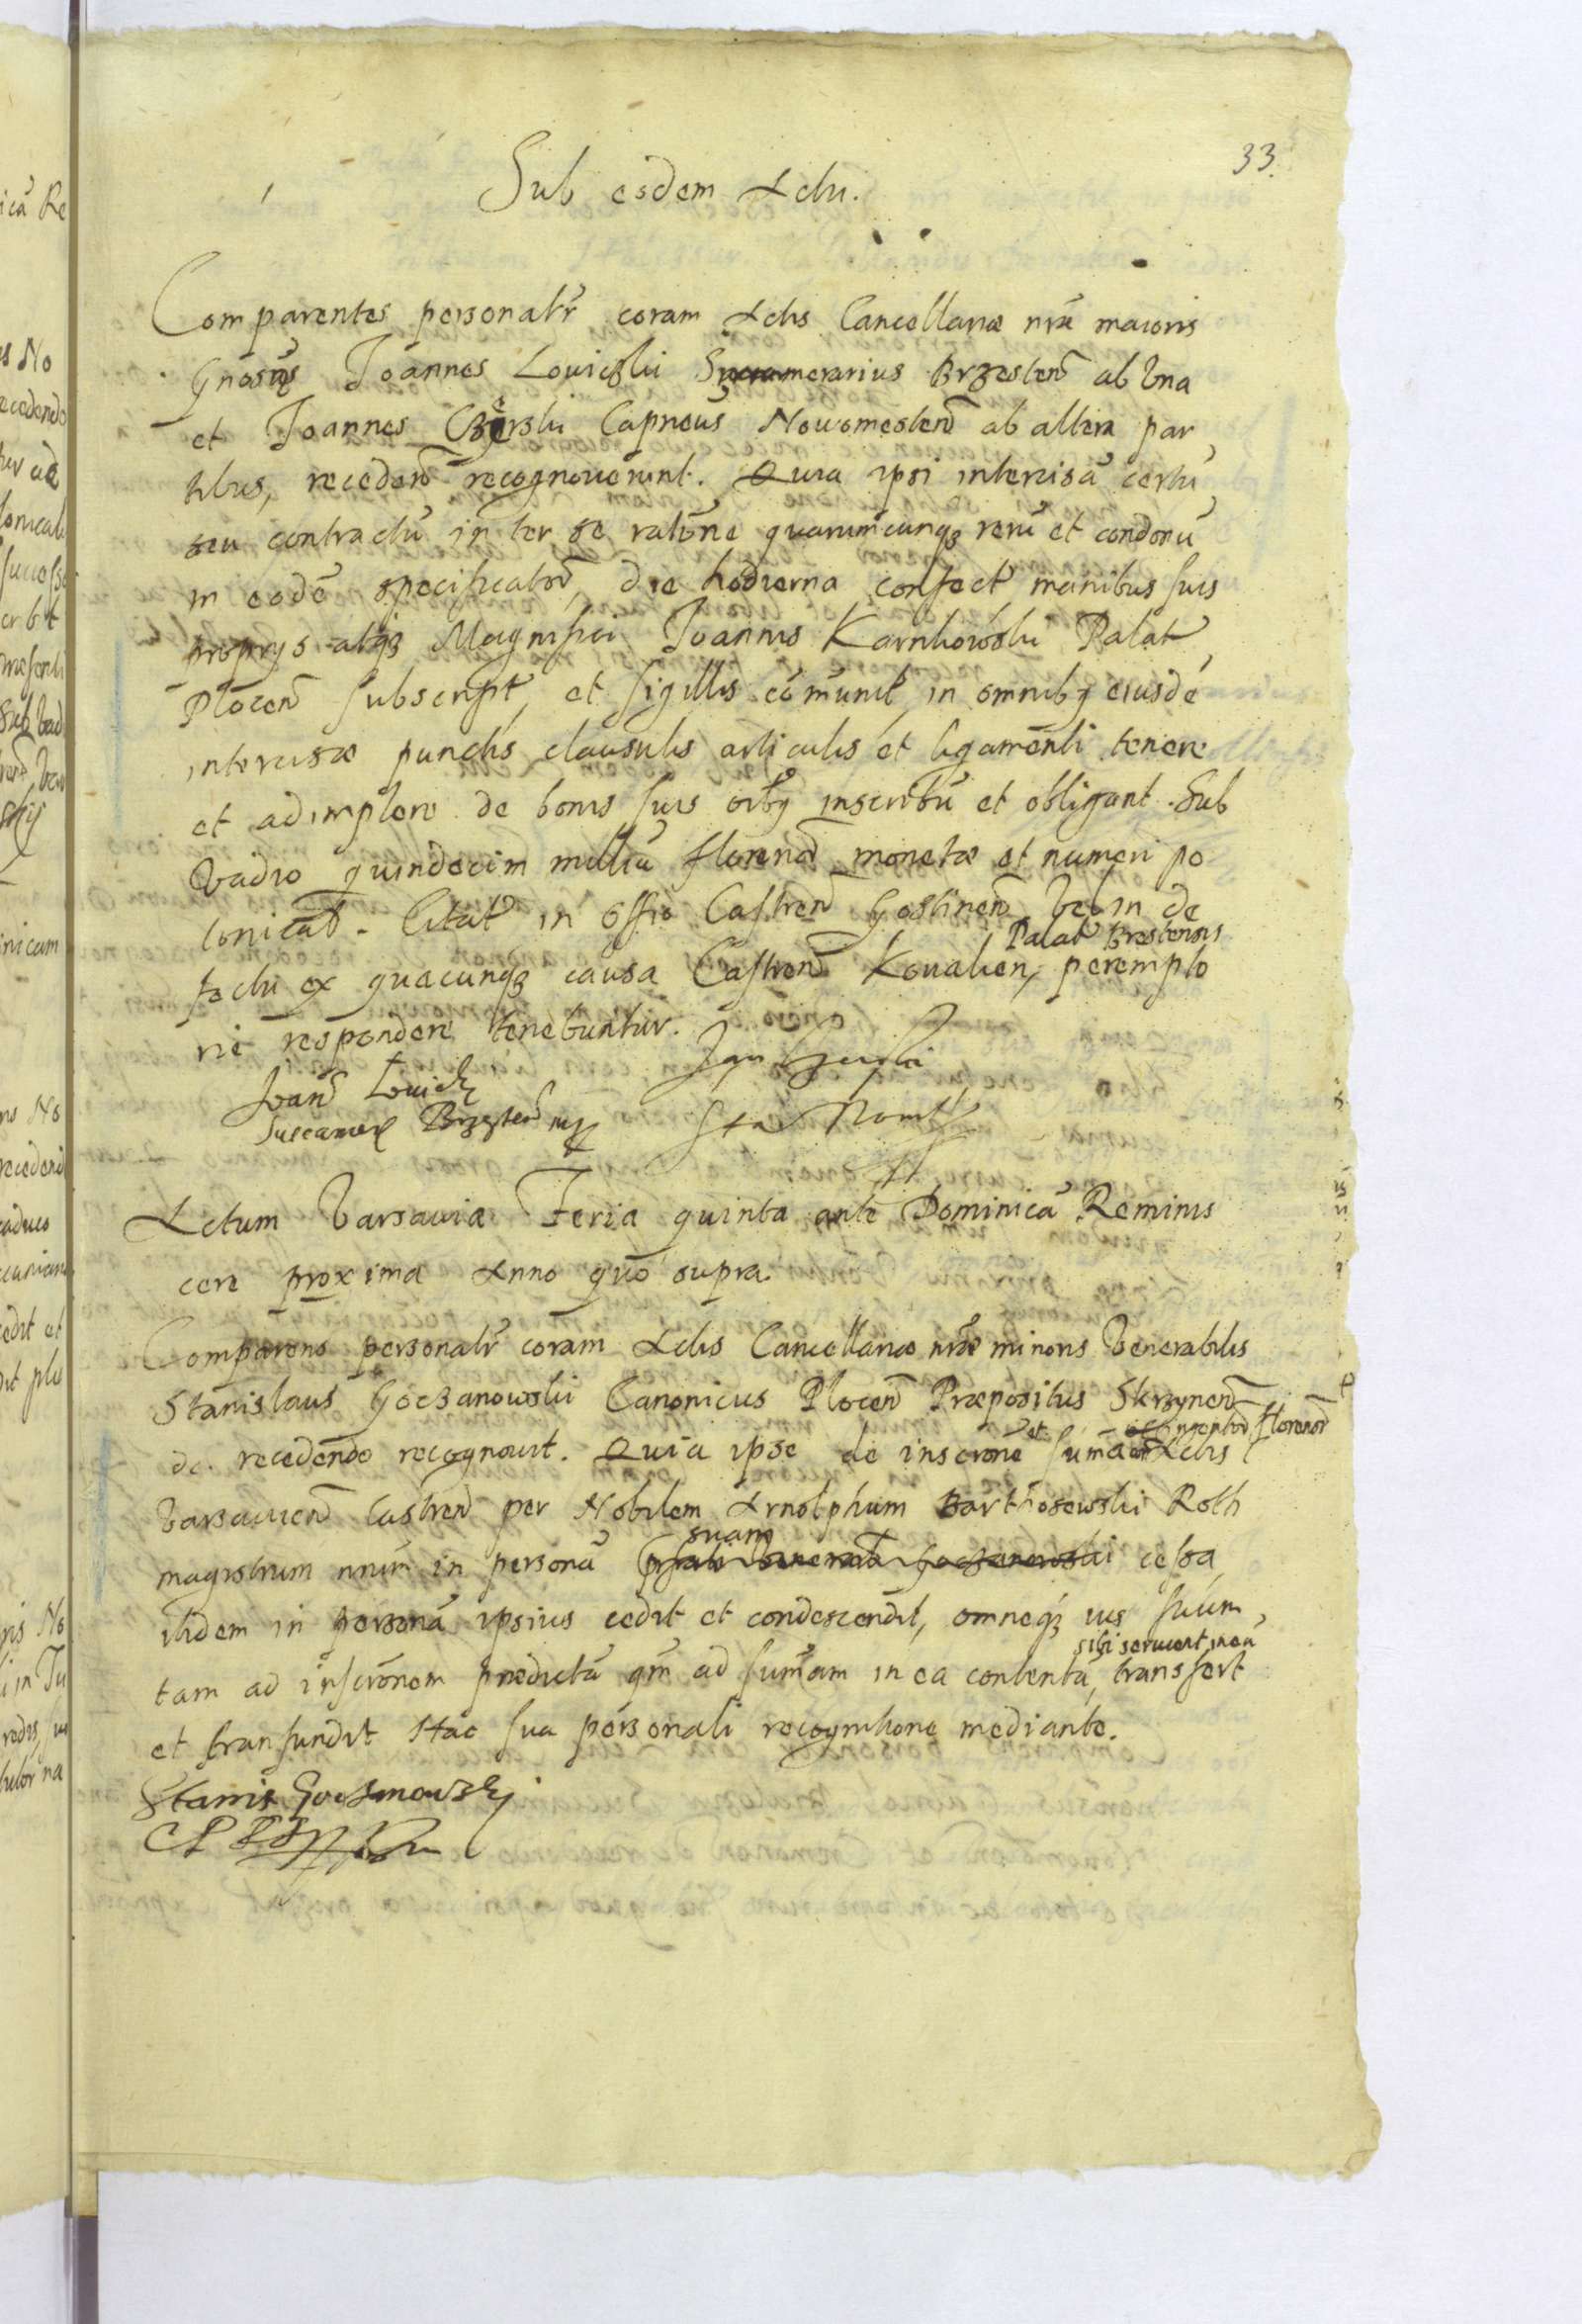 33.
Sub eodem Actu.
Comparentes personalr coram Actis Cancellariæ nræ maioris
Gnosus Joannes Loviczki Succamerarius Brzesten ab Una
et Joannes Czerski Capneus Nowomesten ab altera par
tibus, receden recognoverunt. Quia ipsi intercisā certū
seu contractū inter se ratōne quarumcunqȝ rerū et condonū
in eodē specificator, die hodierna confect manibus suis
proprys atqȝ Magnifici Joannis Karnkowski Palat
Plocen subscript, et sigillis cōmunit, in omnibȝ eiusdē
intercisæ punctis clausulis articulis et ligamenti tenere
et adimplere de bonis suis oībȝ inscribū et obligant. Sub
Vadio quindecim milliū floren monetæ et numeri po
lonical. Citat in Offio Castren Gostinen Vel in de
Palat Brestensis
fectu ex quacunqȝ causa Castren Kovalien, perempto
rie respondere tenebuntur.
Jan Czerski
Joan Lovicki
Succamer Brzesten mp
Actum Varsaviæ Feria quinta ante Dominicā Reminis
cere proxima Anno quo supra.
Comparens personalr coram Actis Cancellariæ nræ minoris Venerabilis
Stanislaus Goczanowski Canonicus Plocen Præpositus Skrzynen
et florenor
de recedendo recognovit. Quia ipse de inscrone sūma Actis
Varsavien Castren per Nobilem Arnolphum Barthosewski Roth
suam
magistrum nrum in personā cessa,
itidem in personā ipsius cedit et condescendit, omneqȝ ius suum,
sibi servient in ea
tam ad inscronem predictā qm ad summam in ea contentā, transfert
et transfundit Hac sua personali recognitione mediante.
Stanis Goczanowski